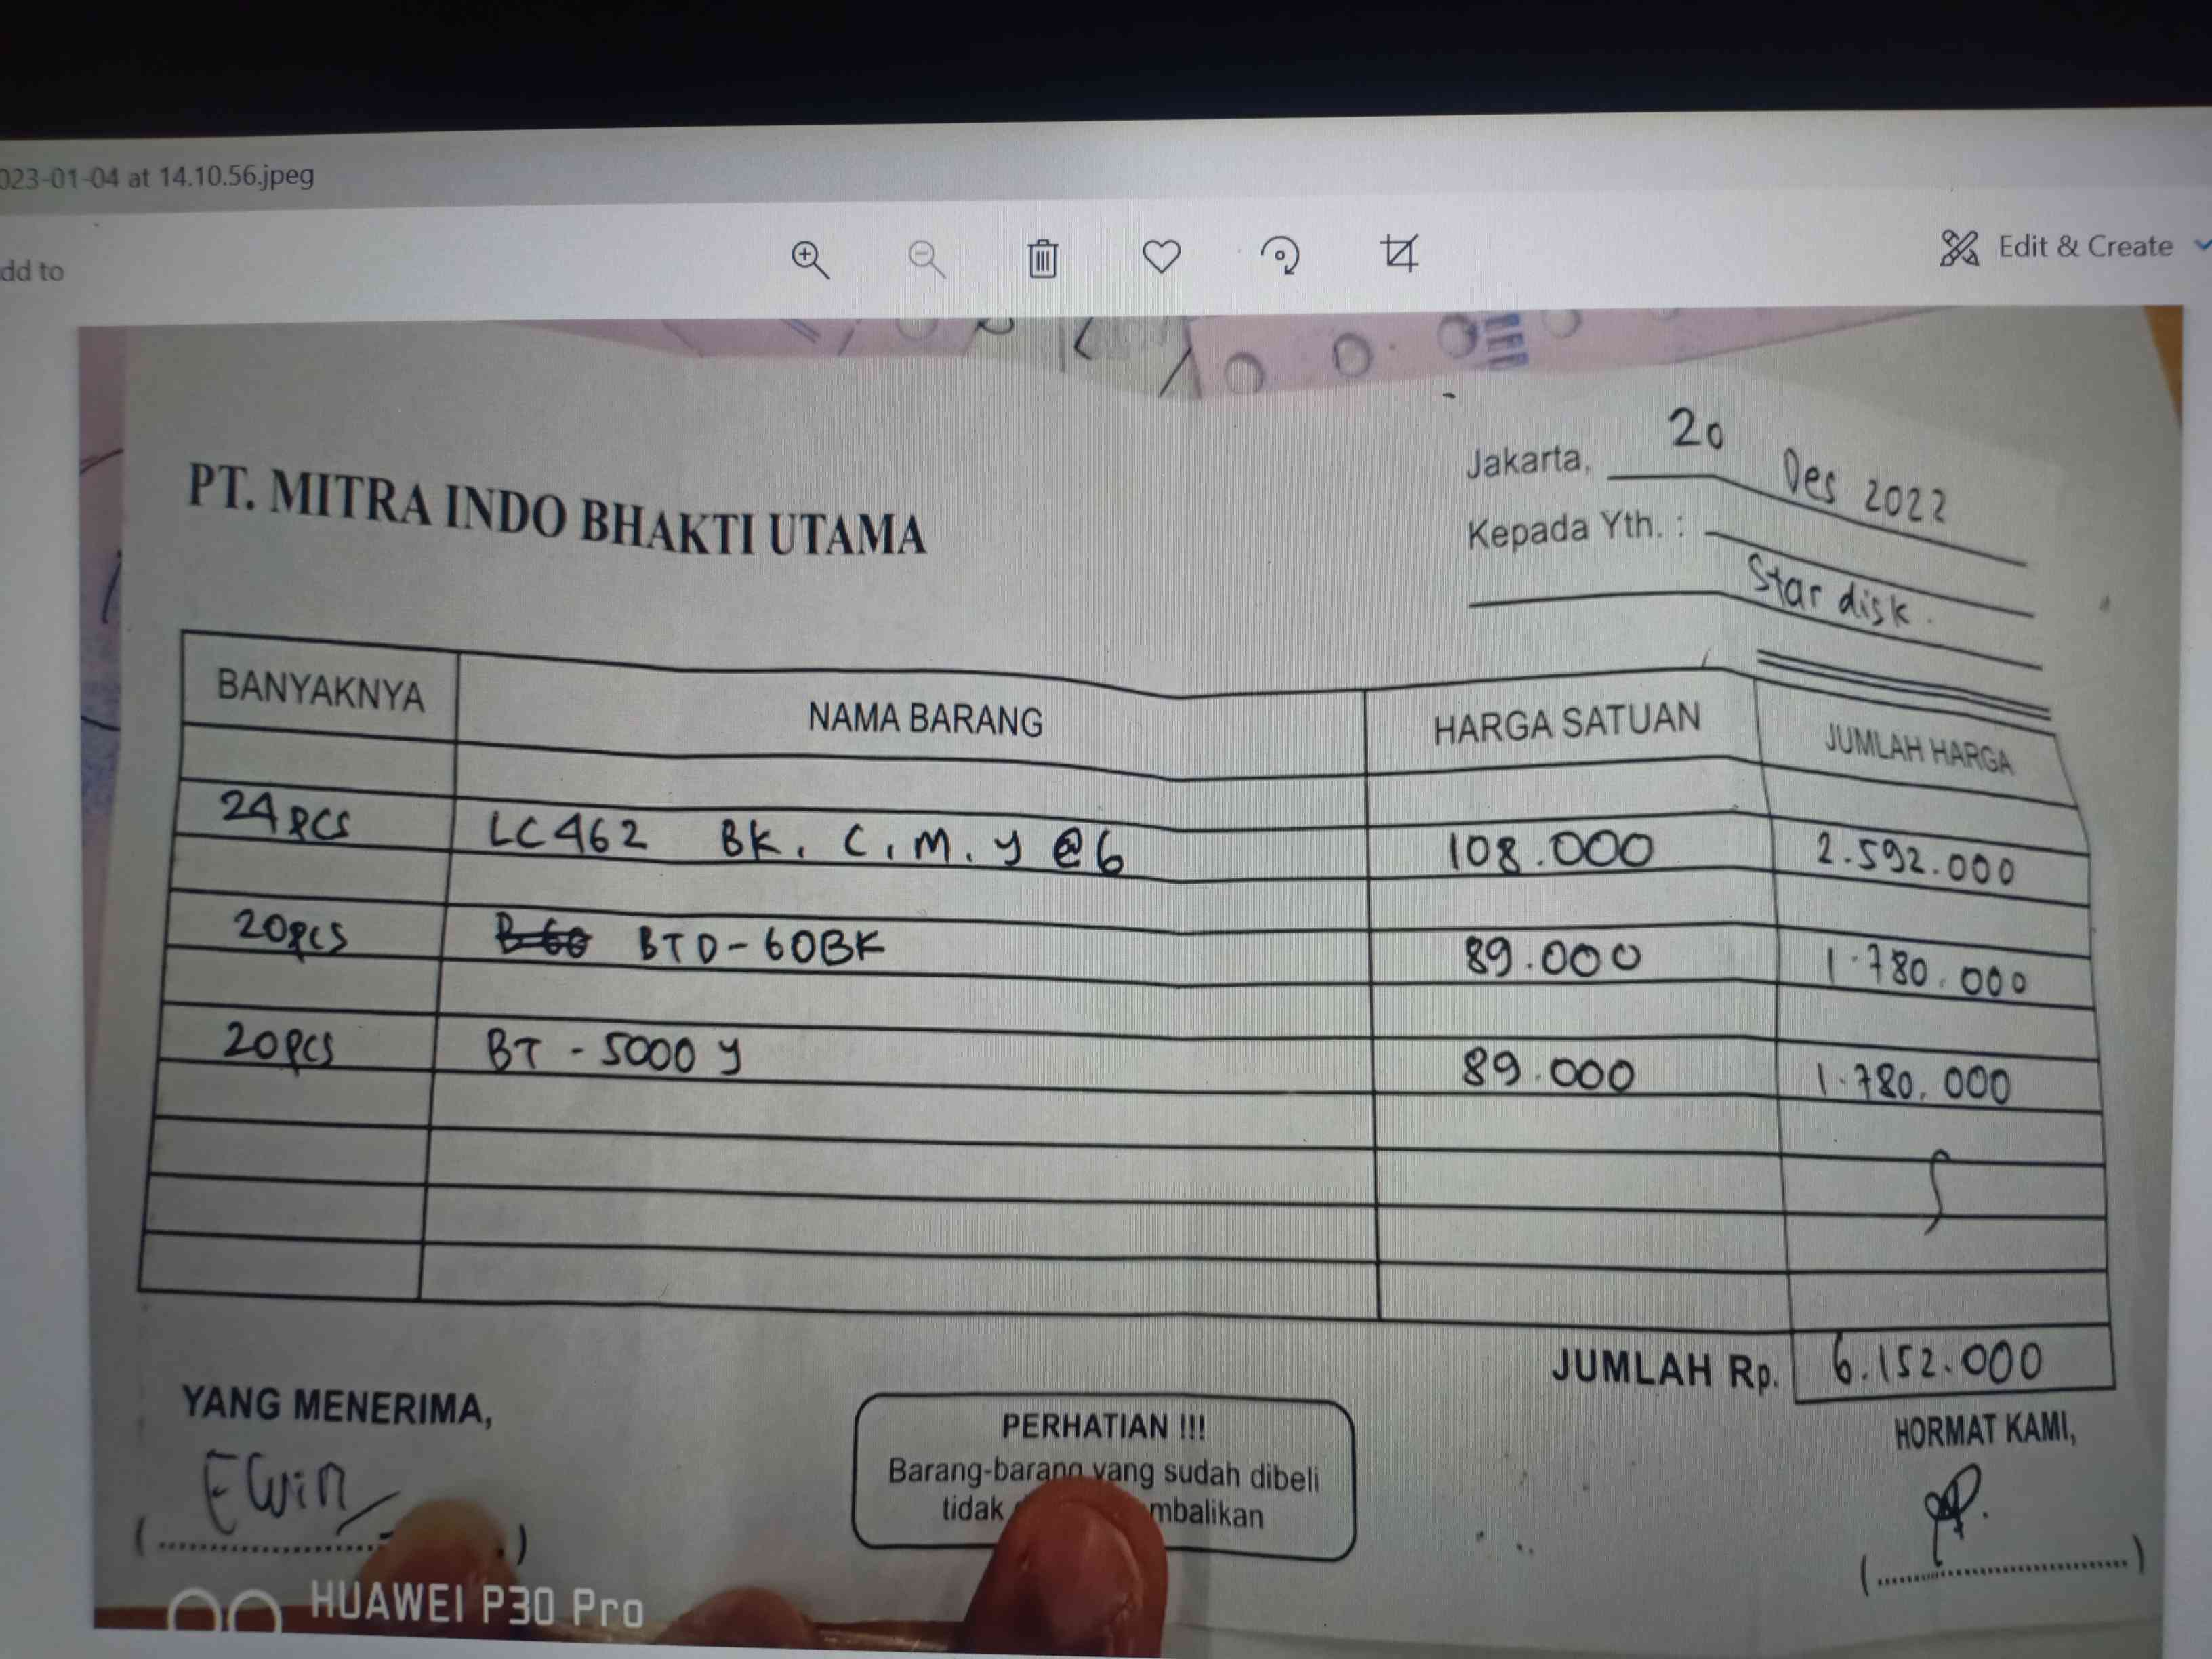 023-01-04 at 14.10.56.jpeg
dd to
Edit & Create
PT. MITRA INDO BHAKTI UTAMA
Jakarta, 20 Des 2022
Kepada Yth. :
Star disk.
BANYAKNYA NAMA BARANG HARGA SATUAN JUMLAH HARGA
24 pcs LC462 BK. C, M. Y @6 108.000 2.592.000
20pcs BTD-60BK 89.000 1.780.000
20pcs BT - 5000 Y 89.000 1.780.000
JUMLAH Rp. 6.152.000
YANG MENERIMA,
Ewin
PERHATIAN !!!
Barang-barang yang sudah dibeli
tidak mbalikan
HORMAT KAMI,
HUAWEI P30 Pro